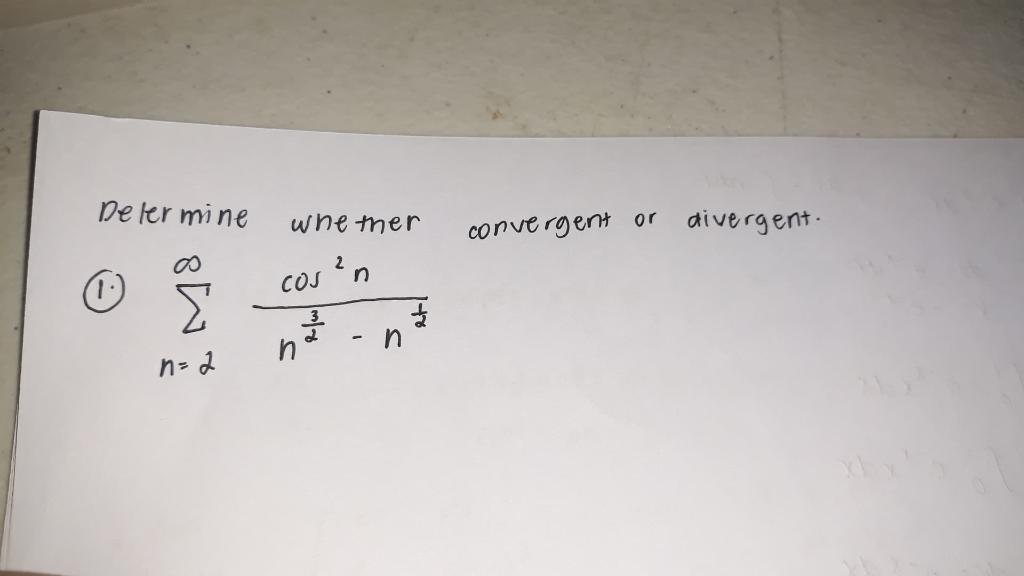 Determine whether convergent or divergent.
1. ∞ Σ n=2 cos²n / n^(3/2) - n^(1/2)